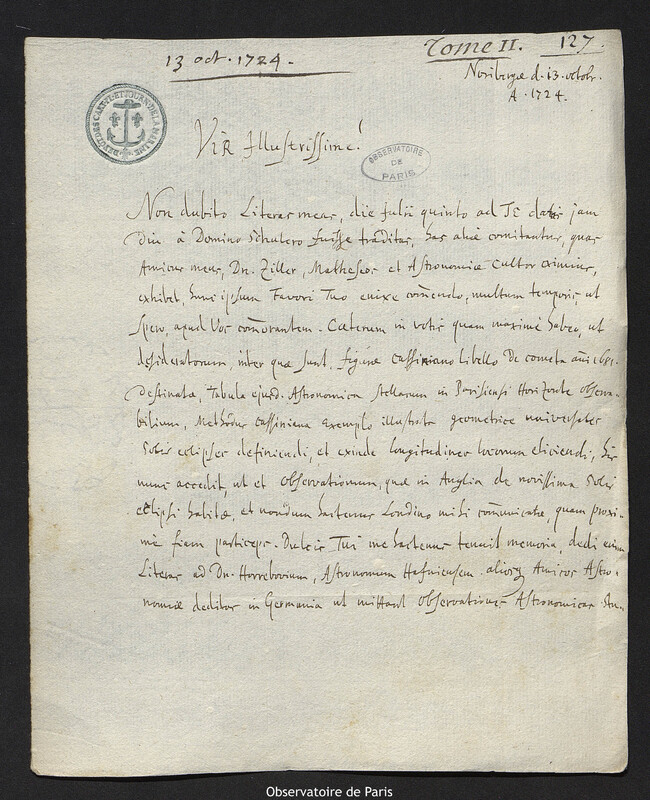 13 oct. 1724.
Tome II. 127.
Noribergæ d. 13. octobr.
A. 1724.
DEPOT DES CARTES ET JOURN. DE LA MARINE
OBSERVATOIRE
DE
PARIS
Vir Illustrissime!
Non dubito Literas meas, die Julii quinto ad Te datas jam
diu à Domino Schulero fuisse traditas, has aliæ comitantur, quas
Amicus meus, Dn. Ziller, Matheseos et Astronomiæ cultor eximius,
exhibet, hunc ipsum Favori Tuo enixe com̄endo, multum temporis, ut
spero, apud Vos com̄orantem. Cæterum in votis quam maxime habeo, ut
desideratorum, inter quæ sunt, figuræ cassiniano libello de cometa anni 1681.
destinatæ, Tabula ejusd. Astronomica stellarum in Parisiensi Horizonte observa-
bilium, Methodus Cassiniana exemplo illustrata geometrice universales
Solis eclipses definiendi, et exinde longitudines locorum eliciendi, his
nunc accedit, ut et observationum, quæ in Anglia de novissima Solis
eclipsi habitæ, et nondum hactenus Londino mihi communicatæ, quam proxi-
mè fiam particeps. Dulcis Tui me hactenus tenuit memoria, dedi enim
Literas ad Dn. Horrebovium, Astronomum Hafniensem aliosq Amicos Astro-
nomiæ deditos in Germania ut mittant Observationes Astronomicas
Observatoire de Paris